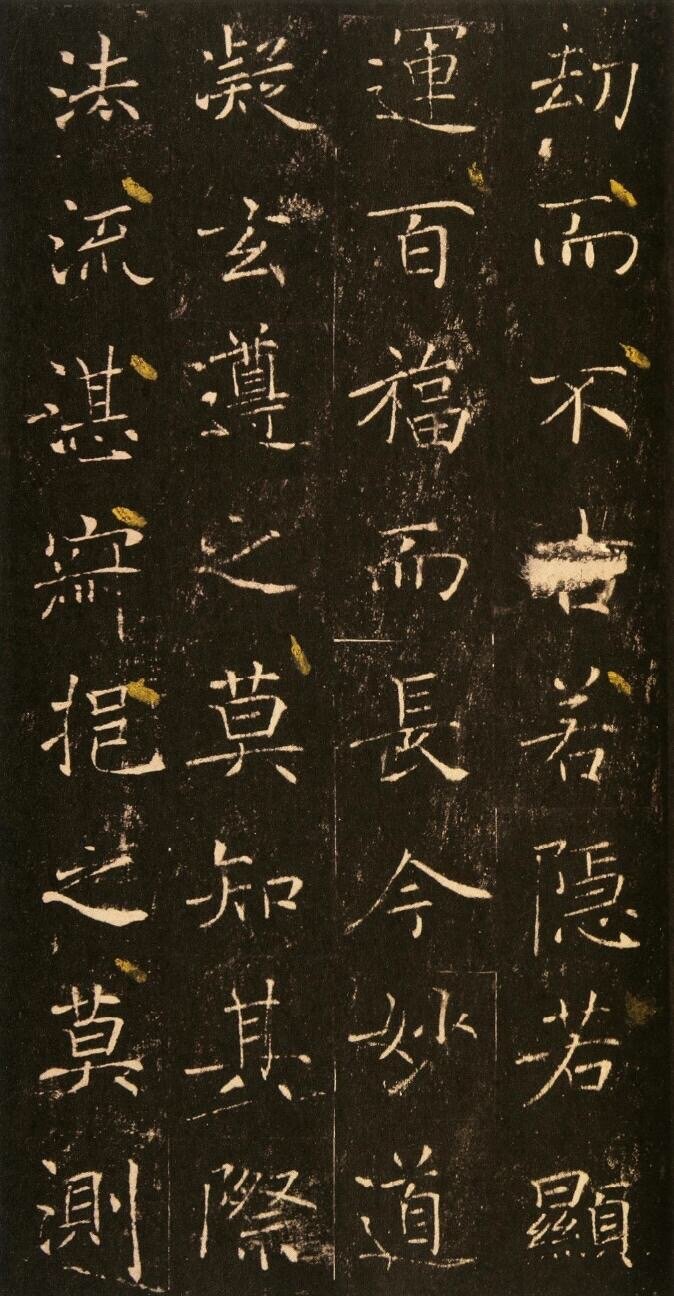 劫而不古若隱若顯
運百福而長今妙道
凝玄遵之莫知其際
法流湛寂挹之莫測